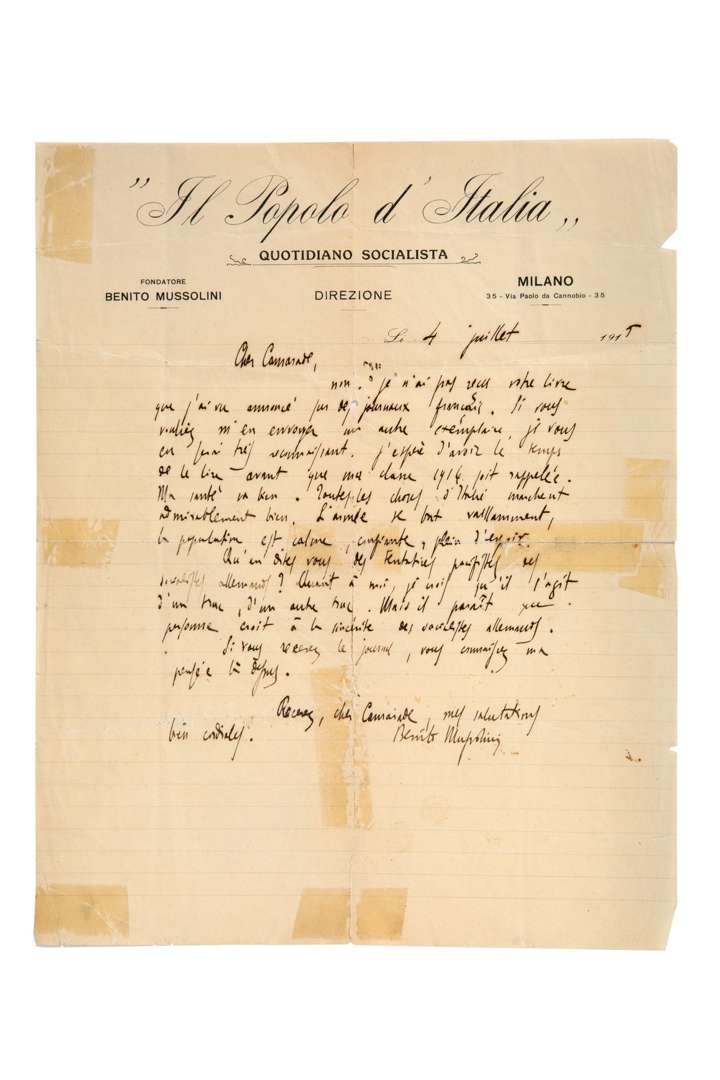 "Il Popolo d'Italia„
QUOTIDIANO SOCIALISTA
FONDATORE
BENITO MUSSOLINI
DIREZIONE
MILANO
35 - Via Paolo da Cannobio - 35
Li 4 juillet 1915
Cher Camarade,
non. je n'ai pas reçu votre livre
que j'ai vu annoncé sur des journaux français. Si vous
voulez m'en envoyer un autre exemplaire, je vous
en serai très reconnaissant. j'espère d'avoir le temps
de le lire avant que ma classe soit rappelée.
Ma santé va bien. Toutes les choses d'Italie marchent
admirablement bien. L'armée se bat vaillamment,
la population est calme, confiante, plein d'espoir.
Qu'en dites vous des tentatives pacifistes des
socialistes allemands? Quant à moi, je crois qu'il s'agit
d'un truc, d'un autre truc. Mais il paraît que
personne croit à la sincérité des socialistes allemands.
Si vous recevez le journal, vous connaissez ma
pensée là dessus.
Recevez, cher Camarade, mes salutations
bien cordiales.
Benito Mussolini